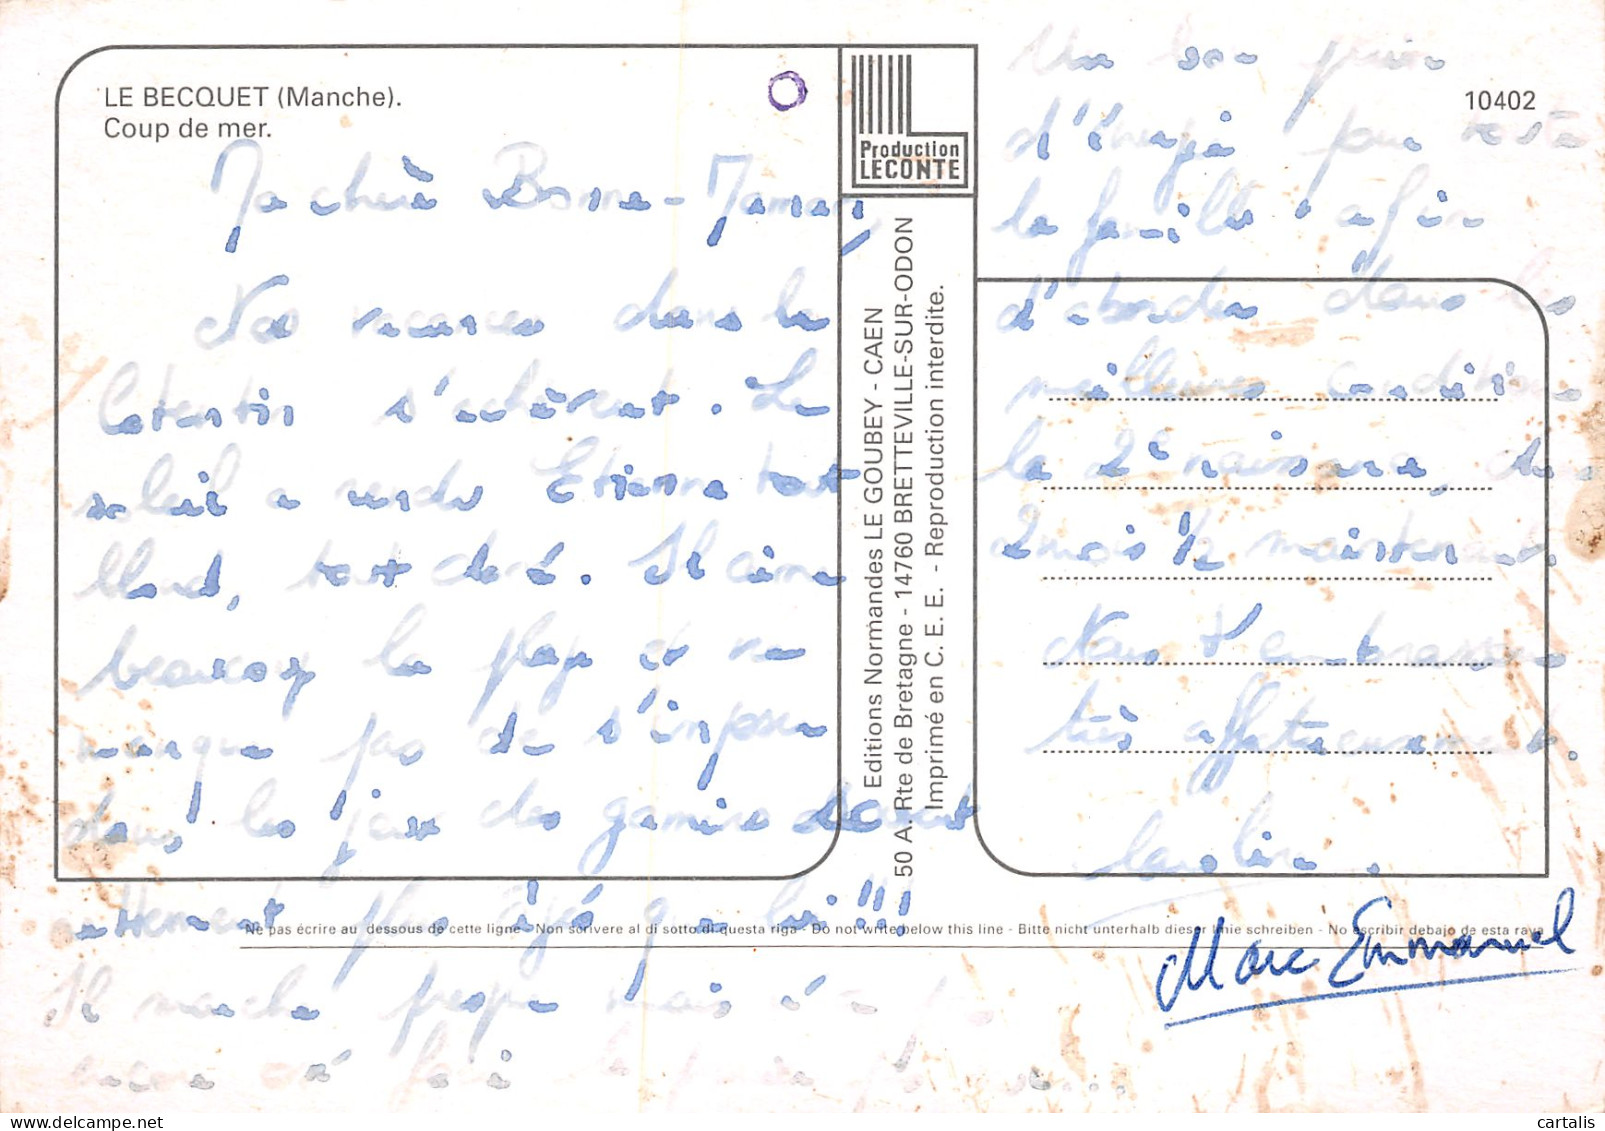 LE BECQUET (Manche).
Coup de mer.
10402
Production
LECONTE
Ma chère Bonne-Maman,
Nos vacances dans le
Cotentin s'achèvent. Le
soleil a rendu Etienne tout
blond, tout doré. Il aime
beaucoup la plage et ne
manque pas de s'imposer
dans les jeux des gamins
nettement plus âgés que lui!!!
Il marche presque mais n'a
encore
Un bon plein
d'énergie pour toute
la famille afin
d'aborder dans les
meilleures conditions
la 2e naissance, dans
2 mois 1/2 maintenant.
Nous t'embrassons
très affectueusement.
Caroline.
Marc Emmanuel
Editions Normandes LE GOUBEY - CAEN
50 A. Rte de Bretagne - 14760 BRETTEVILLE-SUR-ODON
Imprimé en C. E. E. - Reproduction interdite.
Ne pas écrire au dessous de cette ligne - Non scrivere al di sotto di questa riga - Do not write below this line - Bitte nicht unterhalb dieser linie schreiben - No escribir debajo de esta raya
cartalis